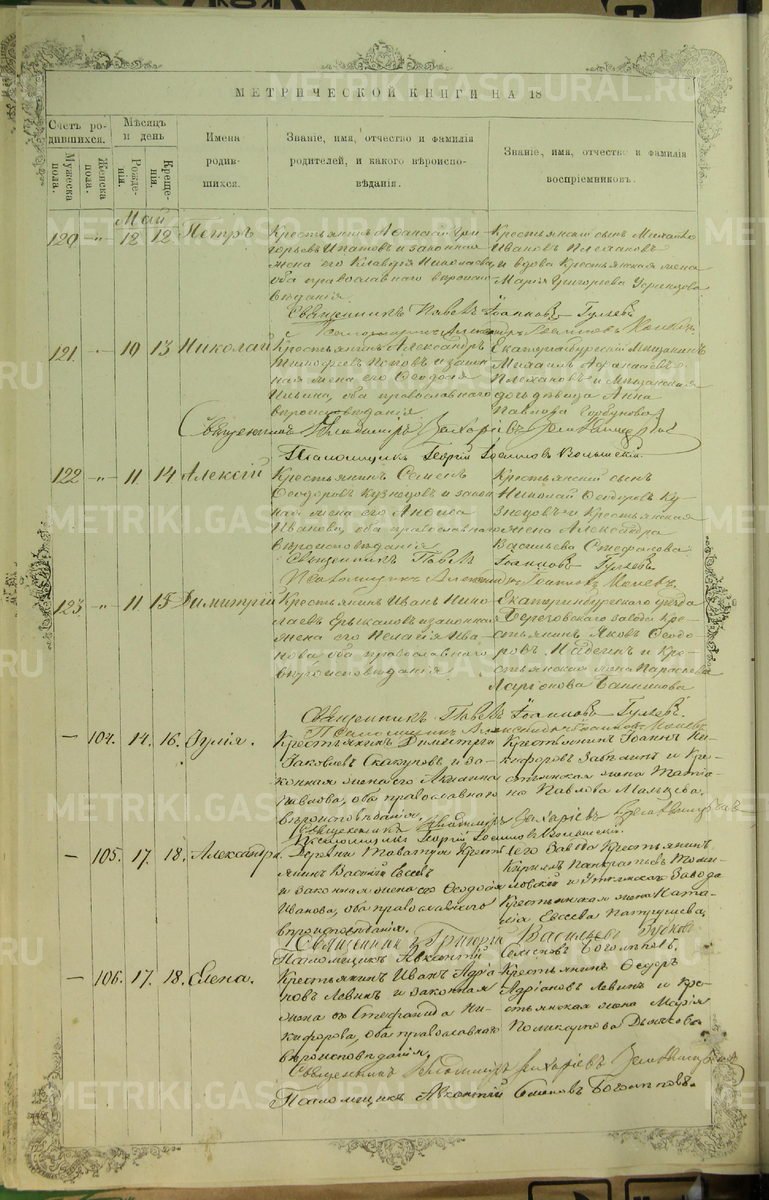 МЕТРИЧЕСКОЙ КНИГИ НА 18
Счетъ родившихся.
Мужеска пола.
Женска пола.
Мѣсяцъ и день
Рожденія.
Крещенія.
Имена родившихся.
Званіе, имя, отчество и фамилія родителей, и какого вѣроисповѣданія.
Званіе, имя, отчество и фамилія воспріемниковъ.
Май
120 -"- 12 12 Петръ
Крестьянинъ Афанасій Григорьевъ
Ипатовъ и законная
жена его Клавдія Николаева,
оба православнаго вѣроисповѣданія
Крестьянскій сынъ Михаилъ
Ивановъ Плехановъ
и вдова Крестьянская жена
Марія Григорьева
Священникъ Павелъ Іоанновъ Гуляевъ
121. -"- 10 13 Николай
Крестьянинъ Александръ
Тимофеевъ Поповъ и законная
жена его Феодосія
Ильина, оба православнаго
вѣроисповѣданія
Екатеринбургскій Мѣщанинъ
Михаилъ Афанасьевъ
Плехановъ и Мѣщанская
дочь девица Анна
Павлова Горбунова
Священникъ Владиміръ Захаріевъ
Псаломщикъ Георгій Іоанновъ
122 -"- 11 14 Алексій
Крестьянинъ Семенъ
Феодоровъ Кузнецовъ и законная
жена его Анфиса
Иванова, оба православнаго
вѣроисповѣданія
Крестьянскій сынъ
Николай Феодоровъ Кузнецовъ
и Крестьянская
жена Александра
Васильева Стефанова
Священникъ Павелъ Іоанновъ Гуляевъ
123. -"- 11 15 Димитрій
Крестьянинъ Иванъ Николаевъ
и законная
жена его Пелагія Иванова
оба православнаго
вѣроисповѣданія
Екатеринбургскаго уѣзда
Березовскаго завода Крестьянинъ
Яковъ Феодоровъ
и Крестьянская
жена Параскева
Ларіонова Банникова
Священникъ Павелъ Іоанновъ Гуляевъ.
— 104. 14. 16. Іулія.
Крестьянинъ Димитрій
Іаковлевъ Скакуновъ и законная
жена его Акилина
Павлова, оба православнаго
вѣроисповѣданія,
Крестьянинъ Іоаннъ Никифоровъ
и Крестьянская
жена Татіана
Павлова Мальцева.
Священникъ Владиміръ Захаріевъ
Псаломщикъ Георгій Іоанновъ
— 105. 17. 18. Александра.
Деревни Таватуя Крестьянинъ
Василій Евсеевъ
и законная жена его Феодосія
Иванова, оба православнаго
вѣроисповѣданія.
завода Крестьянинъ
Кириллъ Панкратьевъ
и Уткинскаго Завода
Крестьянская жена Наталія
Евсеева Патрушева,
Священникъ Григорій Васильевъ
Псаломщикъ Авксентій Семеновъ Боголѣповъ,
— 106. 17. 18. Елена.
Крестьянинъ Иванъ Адріановъ
Левинъ и законная
жена его Стефанида Никифорова,
оба православнаго
вѣроисповѣданія,
Крестьянинъ Феодоръ
Адріановъ Левинъ и Крестьянская
жена Марія
Поликарпова
Священникъ Владиміръ Захаріевъ
Псаломщикъ Авксентій Семеновъ Боголѣповъ
METRIKI.GASO-URAL.RU